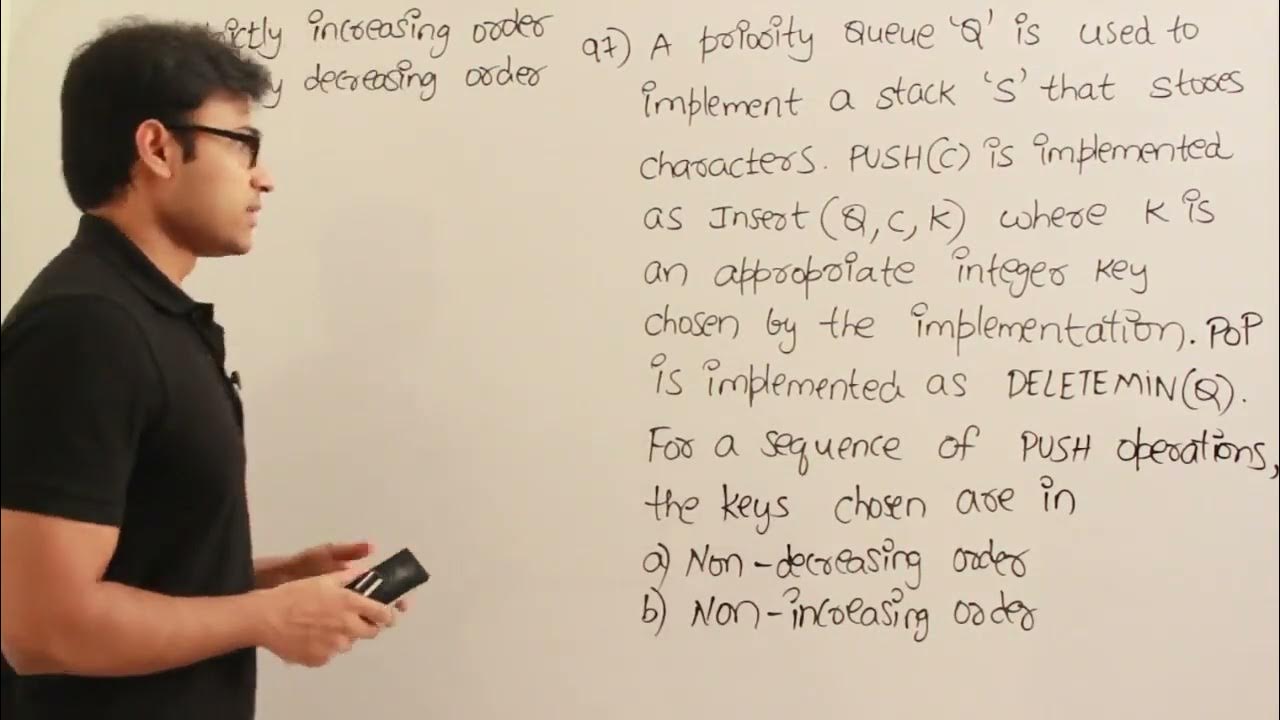 increasing order
decreasing order
97) A priority Queue 'Q' is used to
implement a stack 'S' that stores
characters. PUSH(C) is implemented
as Insert (Q, C, K) where K is
an appropriate integer key
chosen by the implementation. POP
is implemented as DELETEMIN(Q).
For a sequence of PUSH operations,
the keys chosen are in
a) Non-decreasing order
b) Non-increasing order